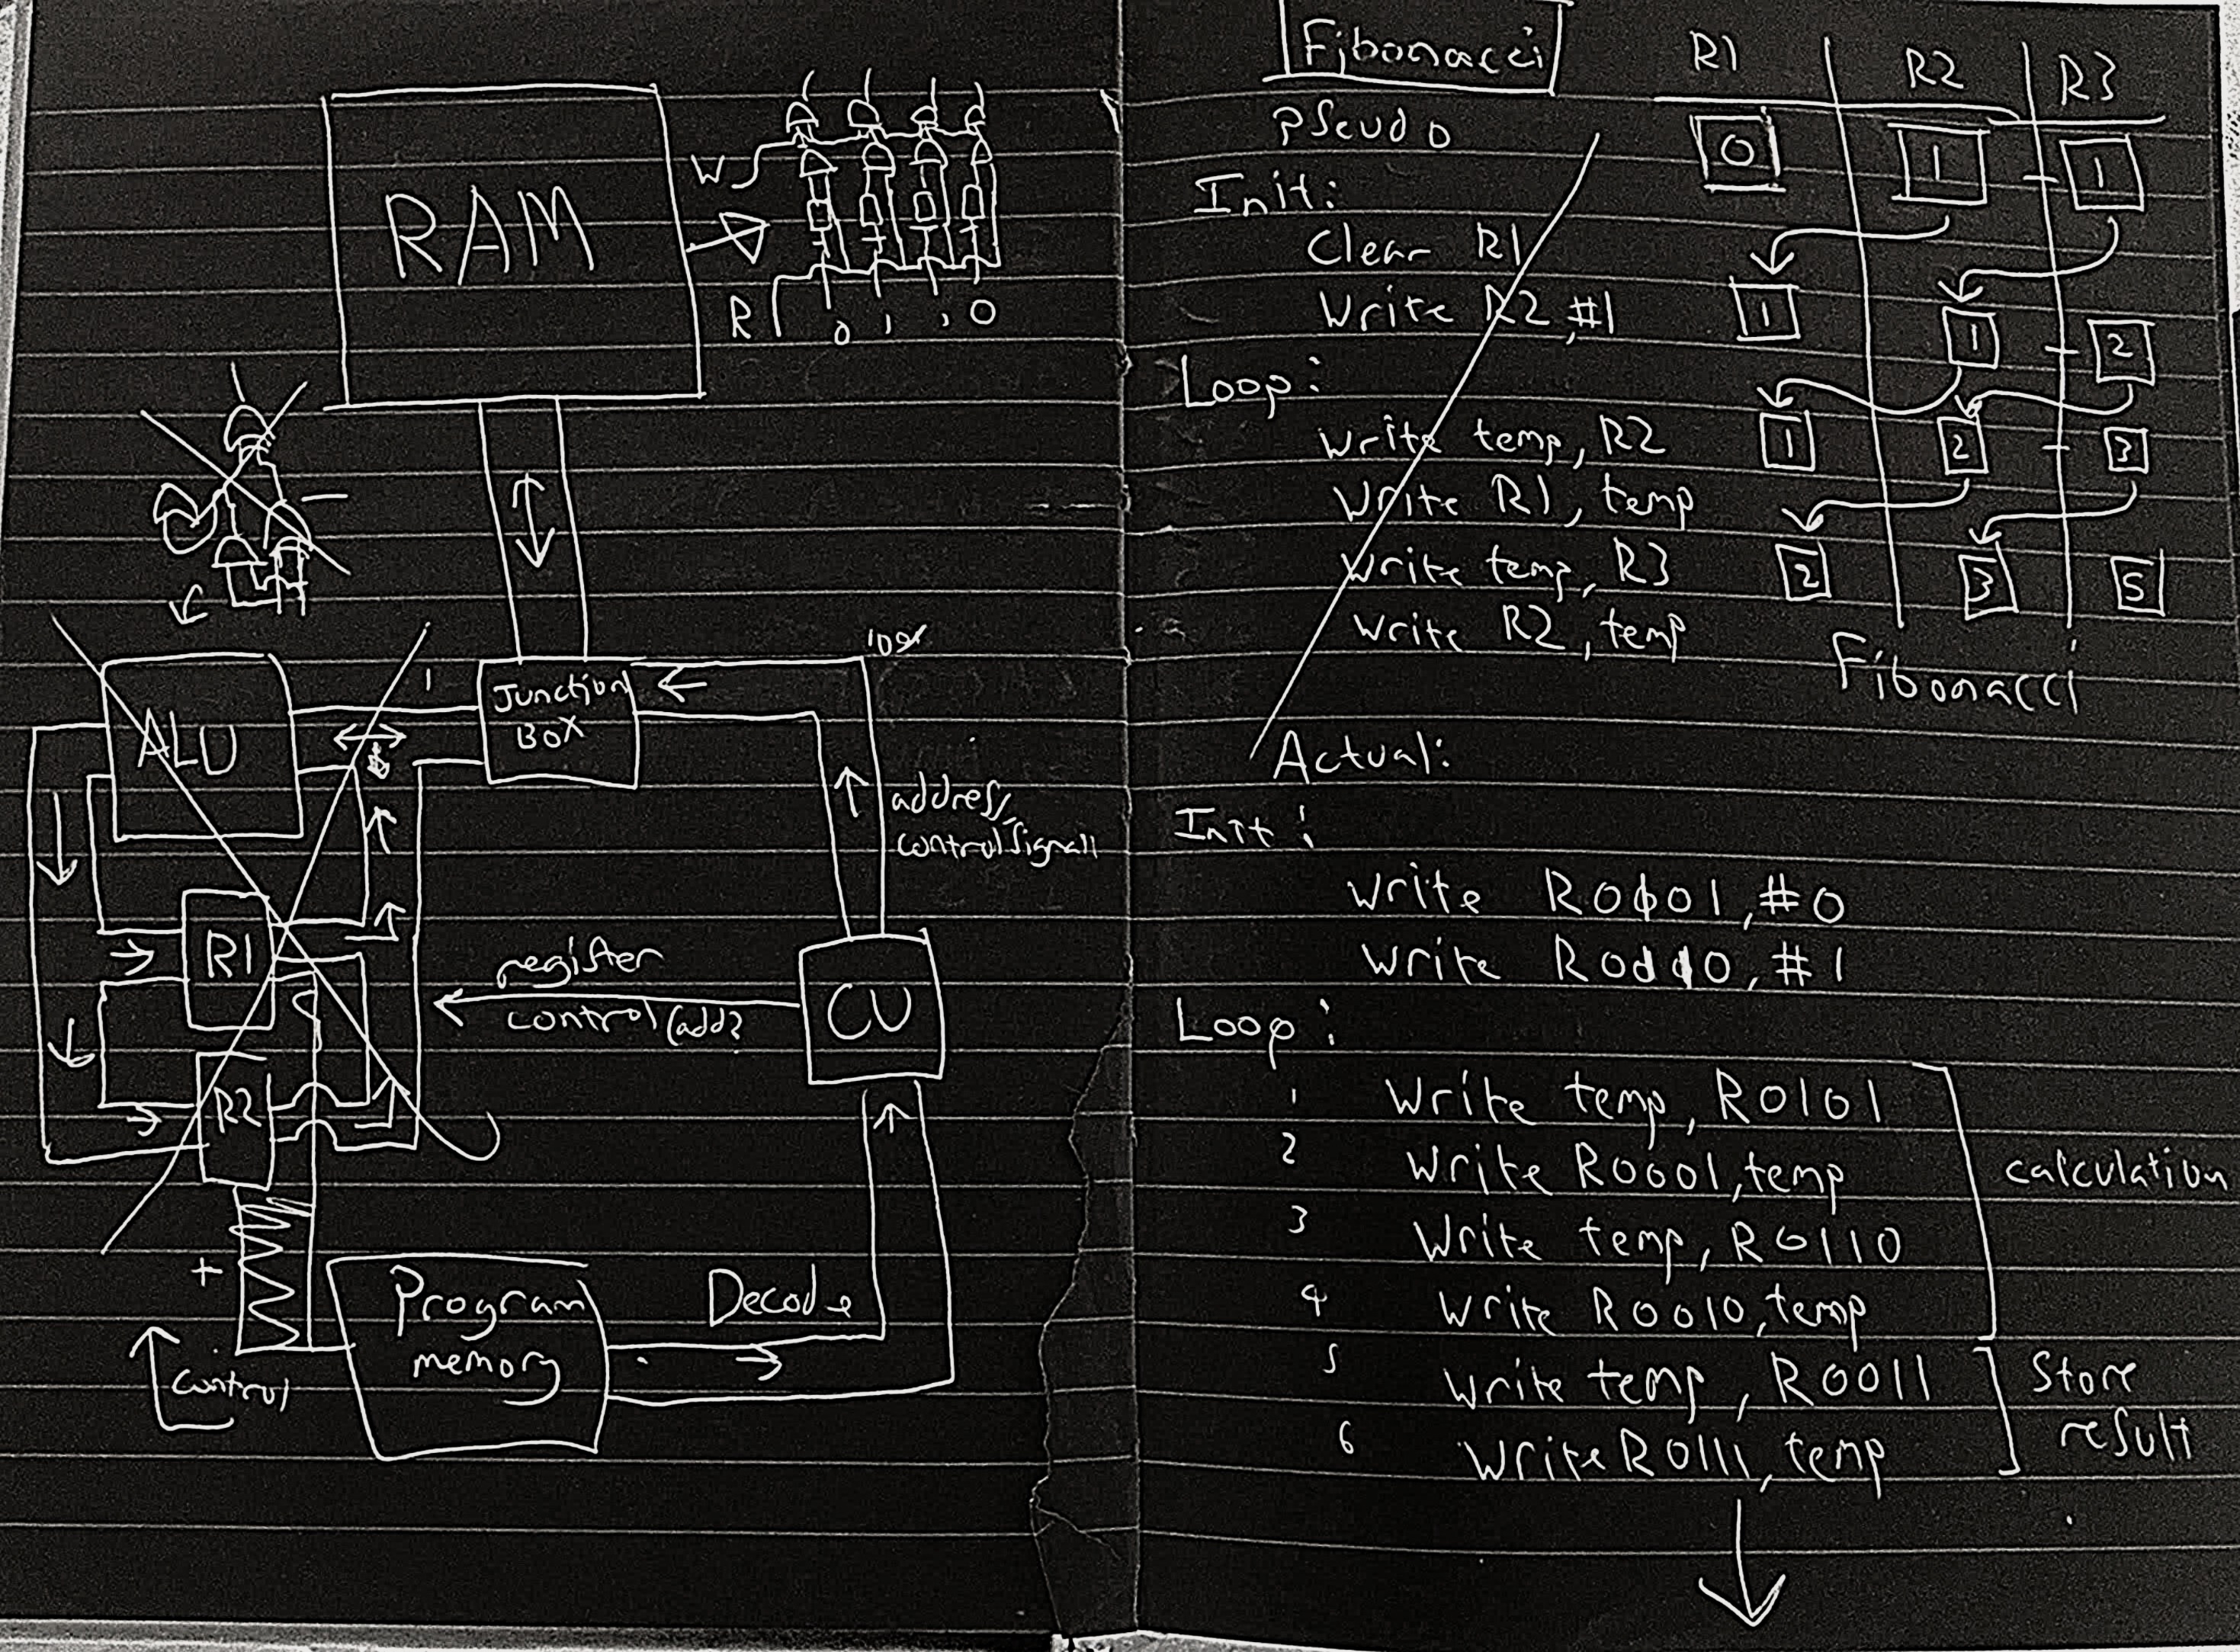 RAM
W
R
0 1 1 0
ALU
1
Junction
BOX
address/
control signall
R1
register
control (add?
CU
R2
+
Program
memory
Decode
control
Fibonacci
R1 R2 R3
0 1 1
1 1 2
1 2 3
2 3 5
Fibonacci
pseudo
Init:
Clear R1
Write R2, #1
Loop:
Write temp, R2
Write R1, temp
Write temp, R3
Write R2, temp
Actual:
Init:
Write R0001, #0
Write R0010, #1
Loop:
1 Write temp, R0101
2 Write R0001, temp
3 Write temp, R0110
4 Write R0010, temp
calculation
5 Write temp, R0011
6 Write R0111, temp
Store
result